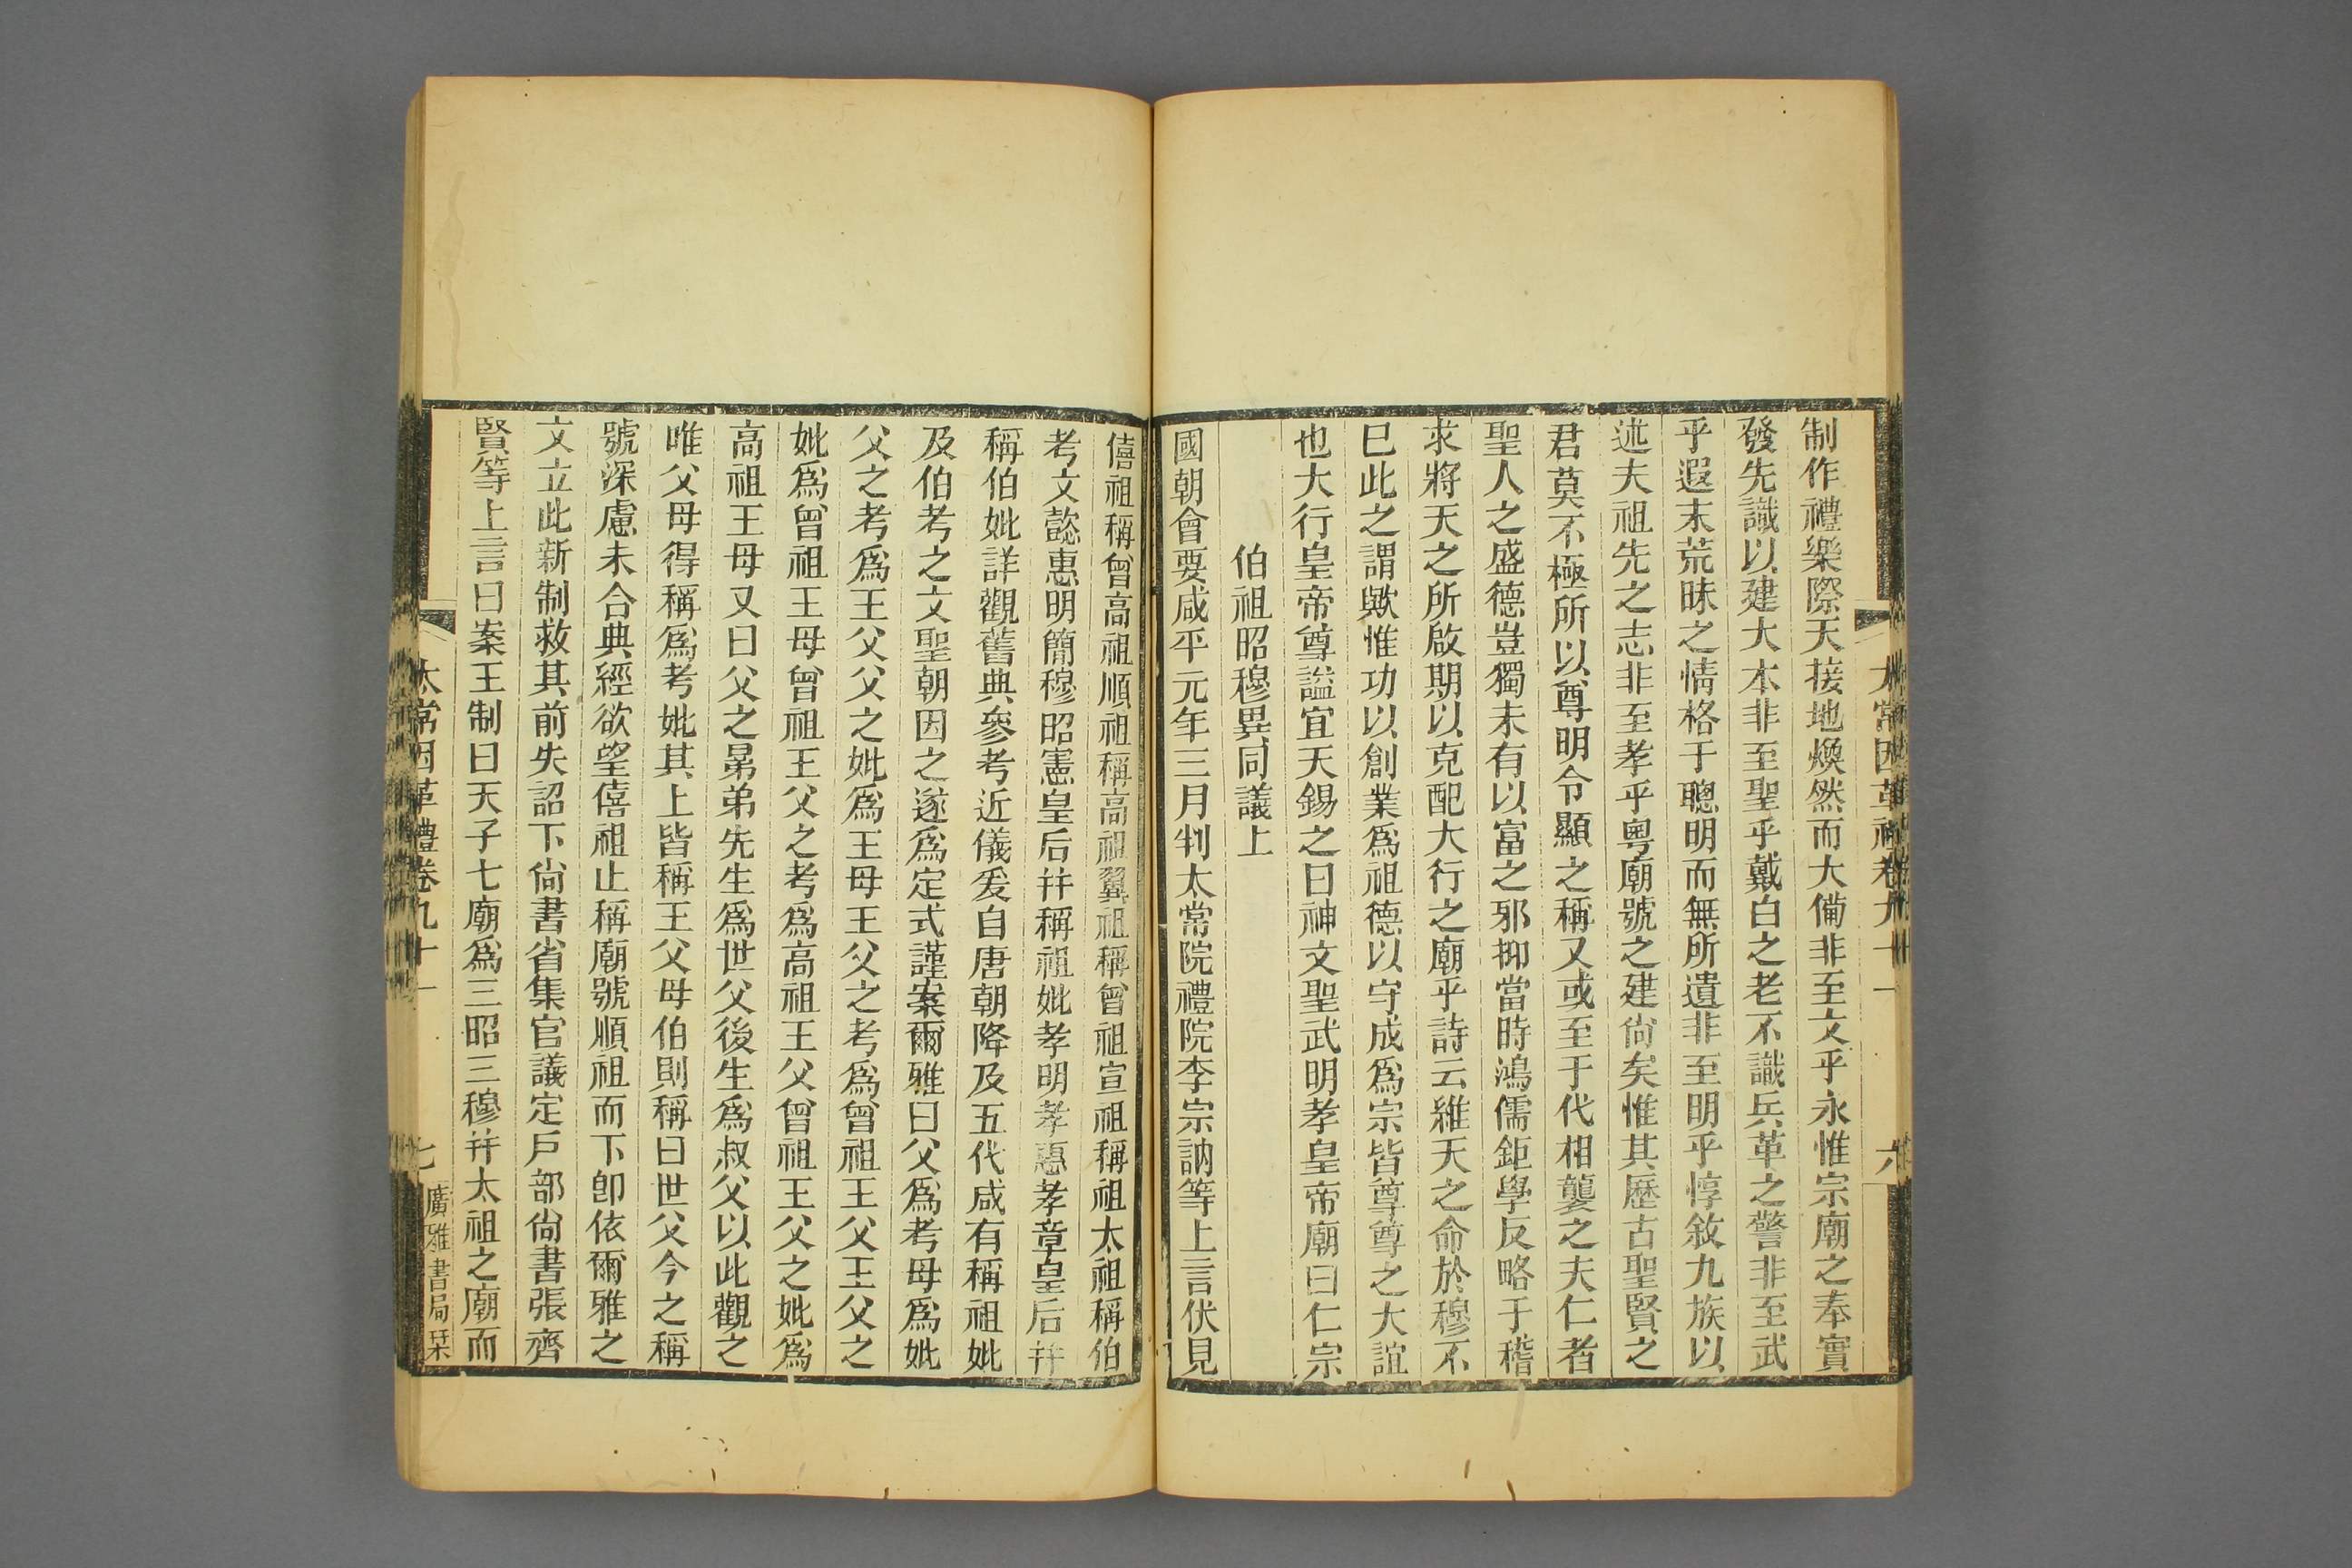 太常因革禮卷九十一
六
制作禮樂際天接地煥然而大備非至文乎永惟宗廟之奉實
發先識以建大本非至聖乎戴白之老不識兵革之警非至武
乎遐末荒昧之情格于聰明而無所遺非至明乎惇敘九族以
述夫祖先之志非至孝乎粵廟號之建尙矣惟其歷古聖賢之
君莫不極所以尊明令顯之稱又或至于代相襲之夫仁者
聖人之盛德豈獨未有以富之邪抑當時鴻儒鉅學反略于稽
求將天之所啟期以克配大行之廟乎詩云維天之命於穆不
巳此之謂歟惟功以創業爲祖德以守成爲宗皆尊尊之大誼
也大行皇帝尊謚宜天錫之曰神文聖武明孝皇帝廟曰仁宗
伯祖昭穆異同議上
國朝會要咸平元年三月判太常院禮院李宗訥等上言伏見
僖祖稱曾高祖順祖稱高祖翼祖稱曾祖宣祖稱祖太祖稱伯
考文懿惠明簡穆昭憲皇后幷稱祖妣孝明孝惠孝章皇后幷
稱伯妣詳觀舊典參考近儀爰自唐朝降及五代咸有稱祖妣
及伯考之文聖朝因之遂爲定式謹案爾雅曰父爲考母爲妣
父之考爲王父父之妣爲王母王父之考爲曾祖王父王父之
妣爲曾祖王母曾祖王父之考爲高祖王父曾祖王父之妣爲
高祖王母又曰父之晜弟先生爲世父後生爲叔父以此觀之
唯父母得稱爲考妣其上皆稱王父母伯則稱曰世父今之稱
號深慮未合典經欲望僖祖止稱廟號順祖而下卽依爾雅之
文立此新制救其前失詔下尙書省集官議定戶部尙書張齊
賢等上言曰案王制曰天子七廟爲三昭三穆幷太祖之廟而
太常因革禮卷九十一
七
廣雅書局栞